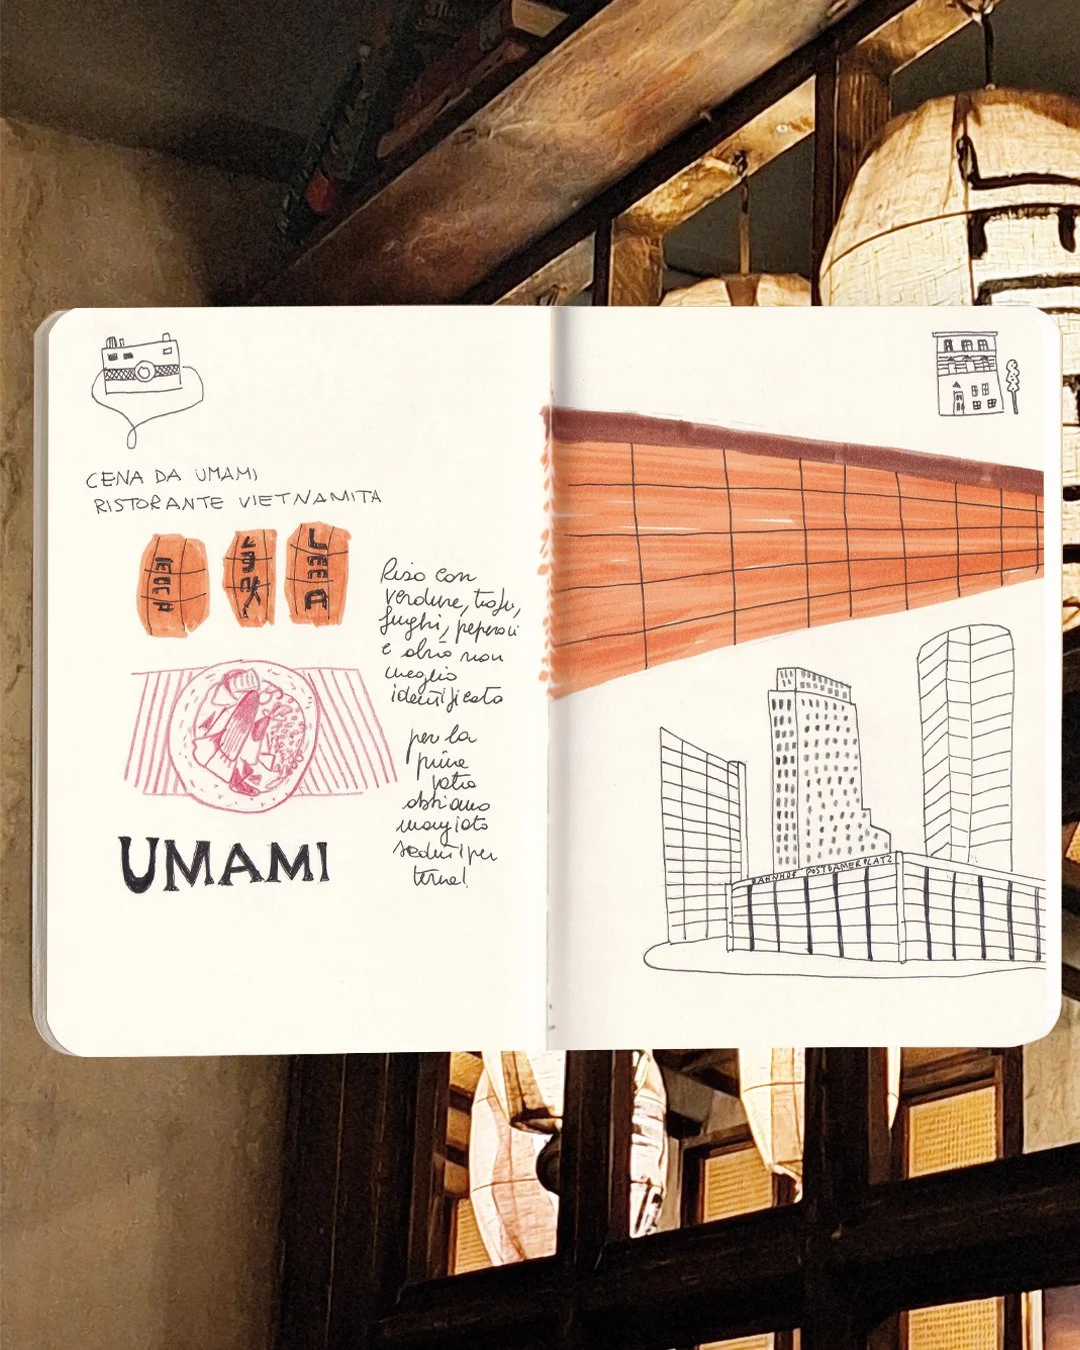 CENA DA UMAMI
RISTORANTE VIETNAMITA
Riso con
verdure, tofu,
funghi, peperoni
e altro non
meglio
identificato
per la
prima
volta
abbiamo
mangiato
seduti per
terra!
UMAMI
BAHNHOF POSTDAMERPLATZ